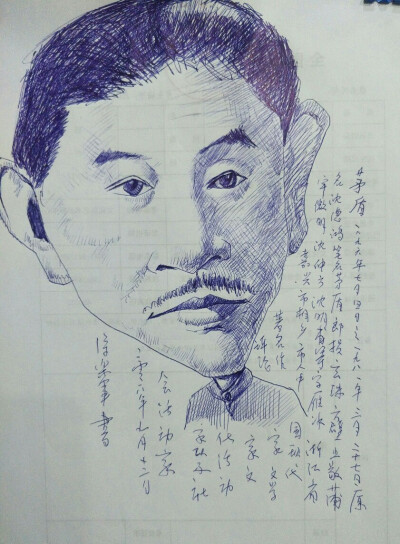 茅盾一八九六年七月四日至一九八一年三月二十七日原
名沈德鸿笔名茅盾郎损玄珠方璧止敬蒲
牢微明沈仲方沈明甫等字雁冰浙江省
嘉兴市桐乡市人中
国现代
著名作家文学
评论家文
化活动
家以及社
会活动家
二零一六年七月十二日